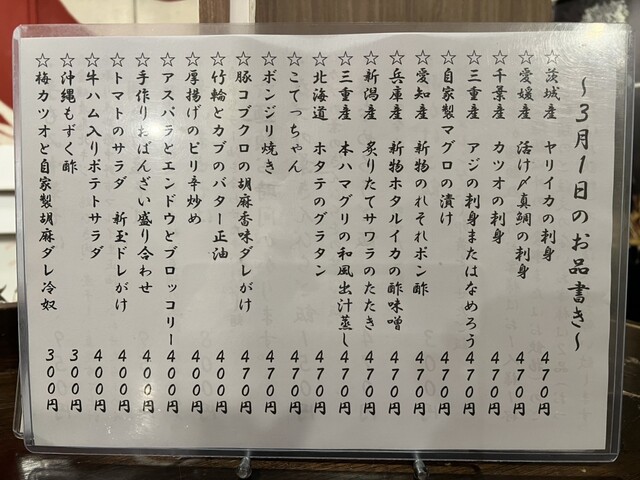 ～3月1日のお品書き～
☆茨城産 ヤリイカの刺身 470円
☆愛媛産 活け〆真鯛の刺身 470円
☆千葉産 カツオの刺身 470円
☆三重産 アジの刺身またはなめろう 470円
☆自家製マグロの漬け 470円
☆愛知産 新物のれそれポン酢 470円
☆兵庫産 新物ホタルイカの酢味噌 470円
☆新潟産 炙りたてサワラのたたき 470円
☆三重産 本ハマグリの和風出汁蒸し 470円
☆北海道 ホタテのグラタン 470円
☆こてっちゃん 470円
☆ボンジリ焼き 470円
☆豚コブクロの胡麻香味ダレがけ 400円
☆竹輪とカブのバター正油 400円
☆厚揚げのピリ辛炒め 400円
☆アスパラとエンドウとブロッコリー 400円
☆手作りおばんざい盛り合わせ 400円
☆トマトのサラダ 新玉ドレがけ 400円
☆牛ハム入りポテトサラダ 400円
☆沖縄もずく酢 300円
☆梅カツオと自家製胡麻ダレ冷奴 300円